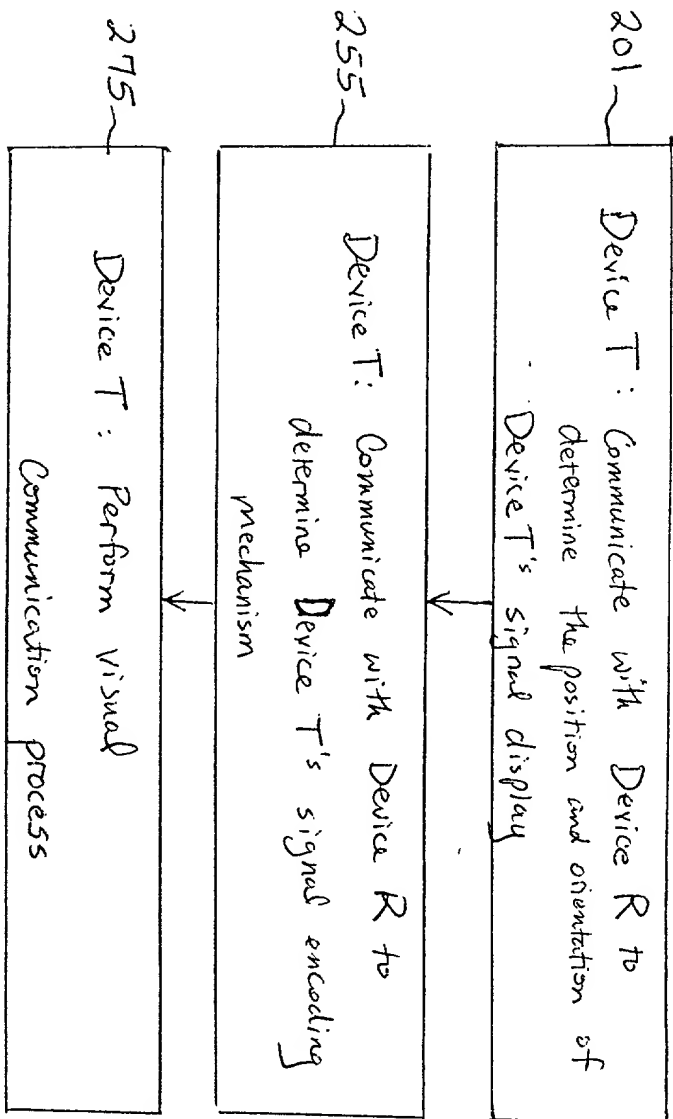 201
Device T: Communicate with Device R to
determine the position and orientation of
Device T's signal display
255
Device T: Communicate with Device R to
determine Device T's signal encoding
mechanism
275
Device T: Perform visual
Communication process